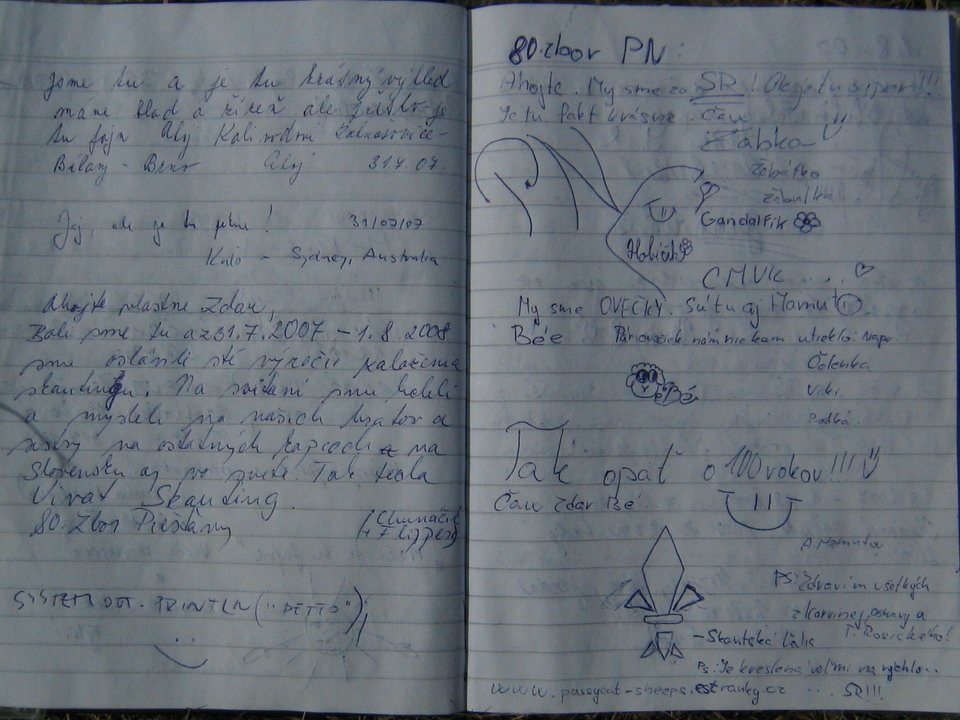 Jsme tu a je tu krásný výhled
máme hlad a žízeň ale
tu fajn Ahoj
Brno Ahoj 31.7.07.
Jej, ale je tu pekne! 31/07/07
Kató - Sydney, Australia
Ahojte vlastne Zdar,
Boli sme tu az 31.7.2007 - 1.8.2008
sme oslávili sté výročie založenia
skautingu. Na svitaní sme boli
a mysleli na našich bratov a
sestry na ostatných kopcoch a na
Slovensku aj vo svete. Tak teda
Vivat Skauting.
80. Zbor Piešťany
SYSTEM.OUT.PRINTLN("DETTO");
80. zbor PN:
Ahojte. My sme zo SR! Ok je tu super!!!
Je tu fakt krásne. Čau
Žabka
Žabátko
Gandalfik
CMUK....
My sme OVEČKY. Sú tu aj Mamut
Bée nám niekam utiekli. Napr.
Čelenka
Viki
Bé
Tak opäť o 100 rokov!!!
Čau Zdar Bé
A Mamuta
PS: Zdravím všetkých
z Karvinej, Ostravy a
T. Rosického!
- Skautská lalia
Ps: Je kreslená veľmi narýchlo...
www.pussycat-sheeps.estranky.cz ... SR!!!